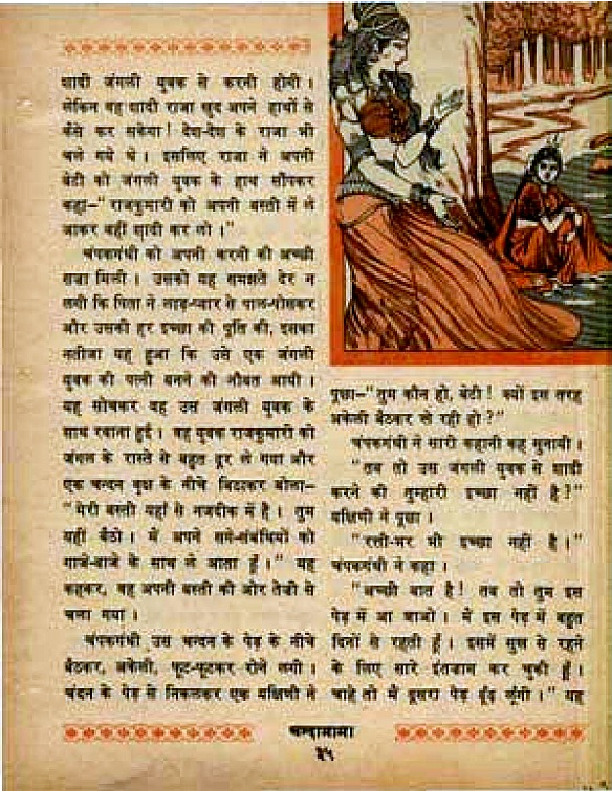 शादी जंगली युवक से करनी होगी ।
लेकिन वह शादी राजा खुद अपने हाथों से
कैसे कर सकेगा ! देश-देश के राजा भी
चले गये थे । इसलिए राजा ने अपनी
बेटी को जंगली युवक के हाथ सौंपकर
कहा–"राजकुमारी को अपनी बस्ती में ले
जाकर वहीं शादी कर लो ।"
चंपकगंधी को अपनी करनी की अच्छी
सजा मिली । उसको यह समझते देर न
लगी कि पिता ने लाड़-प्यार से पाल-पोसकर
और उसकी हर इच्छा की पूर्ति की, इसका
नतीजा यह हुआ कि उसे एक जंगली
युवक की पत्नी बनने की नौबत आयी ।
यह सोचकर वह उस जंगली युवक के
साथ रवाना हुई । वह युवक राजकुमारी को
जंगल के रास्ते से बहुत दूर ले गया और
एक चन्दन वृक्ष के नीचे बिठाकर बोला–
"मेरी बस्ती यहाँ से नजदीक में है । तुम
यहीं बैठो । मैं अपने सगे-संबंधियों को
गाजे-बाजे के साथ ले आता हूँ ।" यह
कहकर, वह अपनी बस्ती की ओर तेजी से
चला गया ।
चंपकगंधी उस चन्दन के पेड़ के नीचे
बैठकर, अकेली, फूट-फूटकर रोने लगी ।
चंदन के पेड़ से निकलकर एक यक्षिणी ने
पूछा–"तुम कौन हो, बेटी ! क्यों इस तरह
अकेली बैठकर रो रही हो ?"
चंपकगंधी ने सारी कहानी कह सुनायी ।
"तब तो उस जंगली युवक से शादी
करने की तुम्हारी इच्छा नहीं है ?"
यक्षिणी ने पूछा ।
"रत्ती-भर भी इच्छा नहीं है ।"
चंपकगंधी ने कहा ।
"अच्छी बात है ! तब तो तुम इस
पेड़ में आ जाओ । मैं इस पेड़ में बहुत
दिनों से रहती हूँ । इसमें सुख से रहने
के लिए सारे इंतजाम कर चुकी हूँ ।
चाहे तो मैं दूसरा पेड़ ढूंढ़ लूंगी ।" यह
चन्दामामा
३५